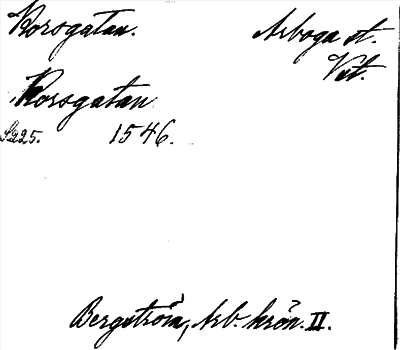 Korsgatan. Arboga st.
Vst.
Korsgatan
S. 225. 1546.
Bergström, Arb. krön. II.